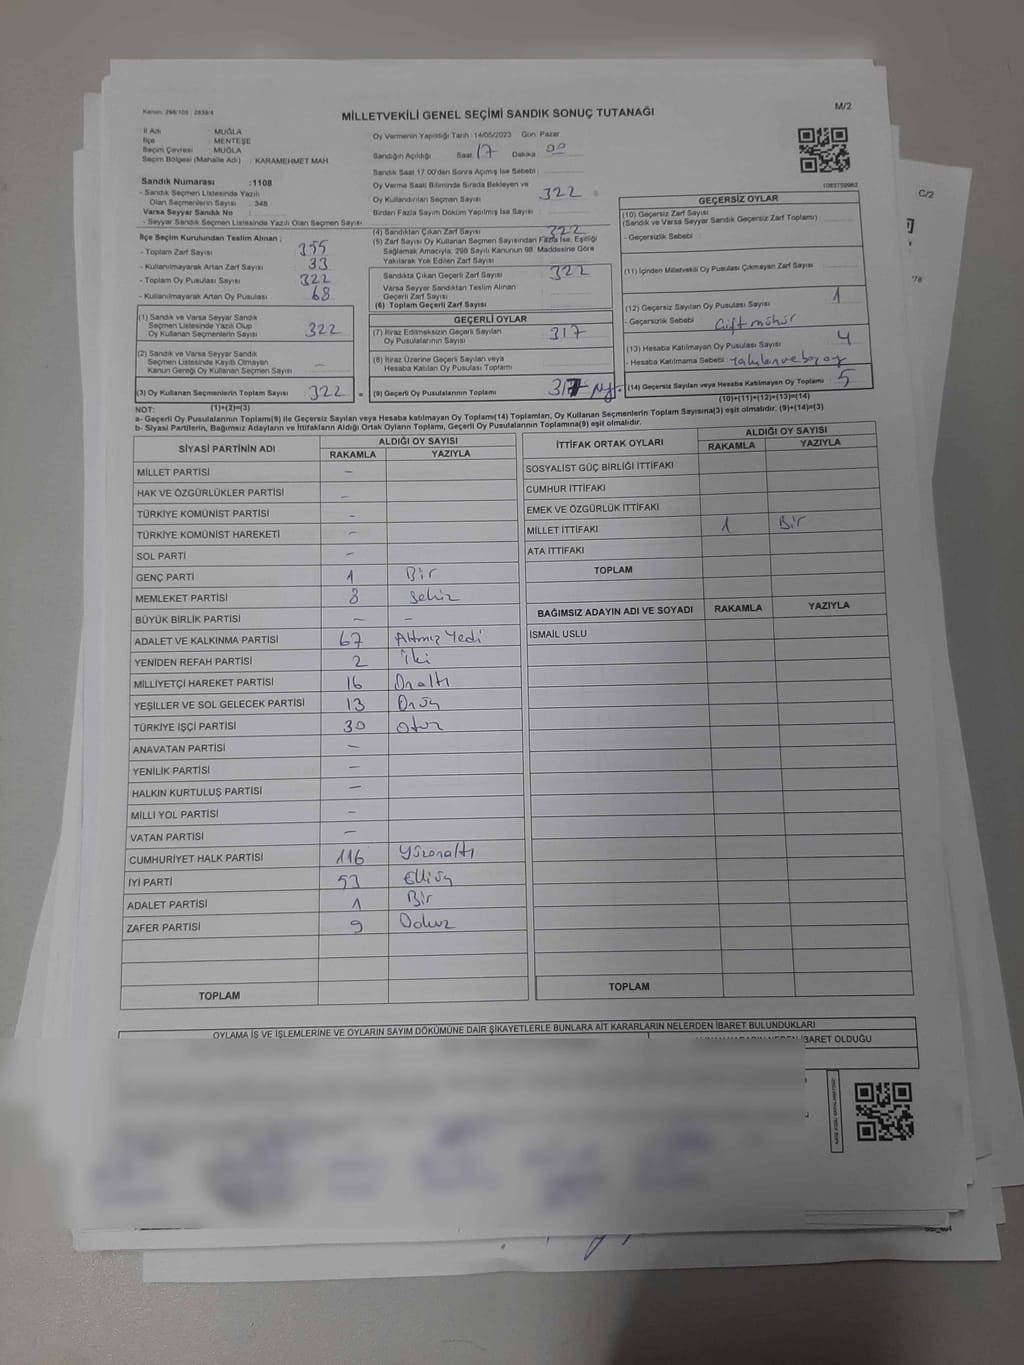 Kanun: 298/105 ; 2839/4
M/2
MİLLETVEKİLİ GENEL SEÇİMİ SANDIK SONUÇ TUTANAĞI
İl Adı : MUĞLA
İlçe : MENTEŞE
Seçim Çevresi : MUĞLA
Seçim Bölgesi (Mahalle Adı) : KARAMEHMET MAH.
Sandık Numarası :1108
- Sandık Seçmen Listesinde Yazılı
Olan Seçmenlerin Sayısı : 348
Varsa Seyyar Sandık No
- Seyyar Sandık Seçmen Listesinde Yazılı Olan Seçmen Sayısı
İlçe Seçim Kurulundan Teslim Alınan ;
- Toplam Zarf Sayısı 355
- Kullanılmayarak Artan Zarf Sayısı 33
- Toplam Oy Pusulası Sayısı 322
- Kullanılmayarak Artan Oy Pusulası 68
(1) Sandık ve Varsa Seyyar Sandık
Seçmen Listesinde Yazılı Olup
Oy Kullanan Seçmenlerin Sayısı 322
(2) Sandık ve Varsa Seyyar Sandık
Seçmen Listesinde Kayıtlı Olmayan
Kanun Gereği Oy Kullanan Seçmen Sayısı –
(3) Oy Kullanan Seçmenlerin Toplam Sayısı 322 =
(1)+(2)=(3)
Oy Vermenin Yapıldığı Tarih :14/05/2023 Gün: Pazar
Sandığın Açıldığı Saat: 17 Dakika: 00
Sandık Saat 17.00'den Sonra Açılmış İse Sebebi :
Oy Verme Saati Bitiminde Sırada Bekleyen ve
Oy Kullandırılan Seçmen Sayısı 322
Birden Fazla Sayım Döküm Yapılmış İse Sayısı
(4) Sandıktan Çıkan Zarf Sayısı 322
(5) Zarf Sayısı Oy Kullanan Seçmen Sayısından Fazla İse, Eşitliği
Sağlamak Amacıyla; 298 Sayılı Kanunun 98. Maddesine Göre
Yakılarak Yok Edilen Zarf Sayısı
Sandıkta Çıkan Geçerli Zarf Sayısı 322
Varsa Seyyar Sandıktan Teslim Alınan
Geçerli Zarf Sayısı
(6) Toplam Geçerli Zarf Sayısı
GEÇERLİ OYLAR
(7) İtiraz Edilmeksizin Geçerli Sayılan
Oy Pusulalarının Sayısı 317
(8) İtiraz Üzerine Geçerli Sayılan veya
Hesaba Katılan Oy Pusulası Toplamı
(9) Geçerli Oy Pusulalarının Toplamı 317
1083759962
GEÇERSİZ OYLAR
(10) Geçersiz Zarf Sayısı
(Sandık ve Varsa Seyyar Sandık Geçersiz Zarf Toplamı)
- Geçersizlik Sebebi :
(11) İçinden Milletvekili Oy Pusulası Çıkmayan Zarf Sayısı
(12) Geçersiz Sayılan Oy Pusulası Sayısı 1
- Geçersizlik Sebebi : Çift mühür
(13) Hesaba Katılmayan Oy Pusulası Sayısı 4
- Hesaba Katılmama Sebebi :
(14) Geçersiz Sayılan veya Hesaba Katılmayan Oy Toplamı 5
(10)+(11)+(12)+(13)=(14)
NOT:
a- Geçerli Oy Pusulalarının Toplamı(9) ile Geçersiz Sayılan veya Hesaba katılmayan Oy Toplamı(14) Toplamları, Oy Kullanan Seçmenlerin Toplam Sayısına(3) eşit olmalıdır. (9)+(14)=(3)
b- Siyasi Partilerin, Bağımsız Adayların ve İttifakların Aldığı Ortak Oyların Toplamı, Geçerli Oy Pusulalarının Toplamına(9) eşit olmalıdır.
SİYASİ PARTİNİN ADI ALDIĞI OY SAYISI
RAKAMLA YAZIYLA
MİLLET PARTİSİ –
HAK VE ÖZGÜRLÜKLER PARTİSİ –
TÜRKİYE KOMÜNİST PARTİSİ –
TÜRKİYE KOMÜNİST HAREKETİ –
SOL PARTİ –
GENÇ PARTİ 1 Bir
MEMLEKET PARTİSİ 8 Sekiz
BÜYÜK BİRLİK PARTİSİ – –
ADALET VE KALKINMA PARTİSİ 67 Altmış Yedi
YENİDEN REFAH PARTİSİ 2 İki
MİLLİYETÇİ HAREKET PARTİSİ 16 Onaltı
YEŞİLLER VE SOL GELECEK PARTİSİ 13 Onüç
TÜRKİYE İŞÇİ PARTİSİ 30 otuz
ANAVATAN PARTİSİ –
YENİLİK PARTİSİ –
HALKIN KURTULUŞ PARTİSİ –
MİLLİ YOL PARTİSİ –
VATAN PARTİSİ –
CUMHURİYET HALK PARTİSİ 116 Yüzonaltı
İYİ PARTİ 53 Elliüç
ADALET PARTİSİ 1 Bir
ZAFER PARTİSİ 9 Dokuz
TOPLAM
İTTİFAK ORTAK OYLARI ALDIĞI OY SAYISI
RAKAMLA YAZIYLA
SOSYALİST GÜÇ BİRLİĞİ İTTİFAKI
CUMHUR İTTİFAKI
EMEK VE ÖZGÜRLÜK İTTİFAKI
MİLLET İTTİFAKI 1 Bir
ATA İTTİFAKI
TOPLAM
BAĞIMSIZ ADAYIN ADI VE SOYADI RAKAMLA YAZIYLA
İSMAİL USLU
TOPLAM
OYLAMA İŞ VE İŞLEMLERİNE VE OYLARIN SAYIM DÖKÜMÜNE DAİR ŞİKAYETLERLE BUNLARA AİT KARARLARIN NELERDEN İBARET BULUNDUKLARI
İBARET OLDUĞU
C/2